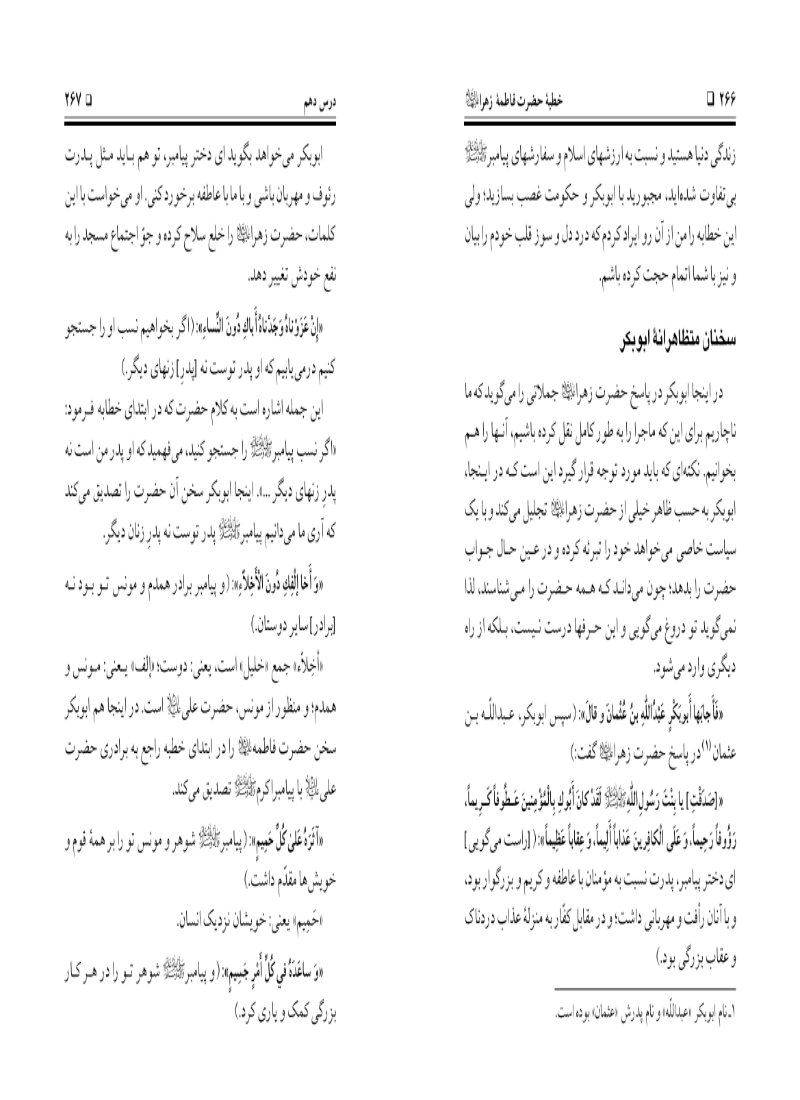 ۲۶۶ ❑ خطبهٔ حضرت فاطمهٔ زهرا
زندگی دنیا هستید و نسبت به ارزشهای اسلام و سفارشهای پیامبرﷺ
بی‌تفاوت شده‌اید، مجبورید با ابوبکر و حکومت غصب بسازید؛ ولی
این خطابه را من از آن رو ایراد کردم که درد دل و سوز قلب خودم را بیان
و نیز با شما اتمام حجت کرده باشم.
سخنان متظاهرانهٔ ابوبکر
در اینجا ابوبکر در پاسخ حضرت زهرا جملاتی را می‌گوید که ما
ناچاریم برای این که ماجرا را به طور کامل نقل کرده باشیم، آنها را هم
بخوانیم. نکته‌ای که باید مورد توجه قرار گیرد این است که در اینجا،
ابوبکر به حسب ظاهر خیلی از حضرت زهرا تجلیل می‌کند و با یک
سیاست خاصی می‌خواهد خود را تبرئه کرده و در عین حال جواب
حضرت را بدهد؛ چون می‌داند که همه حضرت را می‌شناسند، لذا
نمی‌گوید تو دروغ می‌گویی و این حرفها درست نیست، بلکه از راه
دیگری وارد می‌شود.
«فَأَجابَها أَبوبَکْرٍ عَبْدُاللّٰهِ بنُ عُثْمانَ وَ قالَ»: (سپس ابوبکر، عبداللّه بن
عثمان(۱) در پاسخ حضرت زهرا گفت:)
«[صَدَقْتِ] یا بِنْتَ رَسُولِ‌اللّٰهِﷺ لَقَدْ کانَ أَبُوكِ بِالْمُؤْمِنِینَ عَطُوفاً کَرِیماً،
رَؤُوفاً رَحِیماً، وَ عَلَی الْکافِرِینَ عَذاباً أَلِیماً، وَ عِقاباً عَظِیماً»: ([راست می‌گویی]
ای دختر پیامبر، پدرت نسبت به مؤمنان با عاطفه و کریم و بزرگوار بود،
و با آنان رأفت و مهربانی داشت؛ و در مقابل کفّار به منزلهٔ عذاب دردناک
و عقاب بزرگی بود.)
۱ـ نام ابوبکر «عبداللّه» و نام پدرش «عثمان» بوده است.
درس دهم ❑ ۲۶۷
ابوبکر می‌خواهد بگوید ای دختر پیامبر، تو هم باید مثل پدرت
رئوف و مهربان باشی و با ما با عاطفه برخورد کنی. او می‌خواست با این
کلمات، حضرت زهرا را خلع سلاح کرده و جوّ اجتماع مسجد را به
نفع خودش تغییر دهد.
«إِنْ عَزَوْناهُ وَجَدْناهُ أَباكِ دُونَ النِّساءِ»: (اگر بخواهیم نسب او را جستجو
کنیم درمی‌یابیم که او پدر توست نه [پدرِ] زنهای دیگر.)
این جمله اشاره است به کلام حضرت که در ابتدای خطابه فرمود:
«اگر نسب پیامبرﷺ را جستجو کنید، می‌فهمید که او پدر من است نه
پدرِ زنهای دیگر ...». اینجا ابوبکر سخن آن حضرت را تصدیق می‌کند
که آری ما می‌دانیم پیامبرﷺ پدر توست نه پدرِ زنان دیگر.
«وَ أَخا إِلْفِكِ دُونَ الْأَخِلاَّءِ»: (و پیامبر برادر همدم و مونس تو بود نه
[برادر] سایر دوستان.)
«أخِلاّء» جمع «خلیل» است، یعنی: دوست؛ «إلف» یعنی: مونس و
همدم؛ و منظور از مونس، حضرت علی است. در اینجا هم ابوبکر
سخن حضرت فاطمه را در ابتدای خطبه راجع به برادری حضرت
علی با پیامبراکرمﷺ تصدیق می‌کند.
«آثَرَهُ عَلیٰ کُلِّ حَمِیمٍ»: (پیامبرﷺ شوهر و مونس تو را بر همهٔ قوم و
خویش‌ها مقدّم داشت.)
«حَمِیم» یعنی: خویشان نزدیک انسان.
«وَ ساعَدَهُ فِي کُلِّ أَمْرٍ جَسِیمٍ»: (و پیامبرﷺ شوهر تو را در هر کار
بزرگی کمک و یاری کرد.)